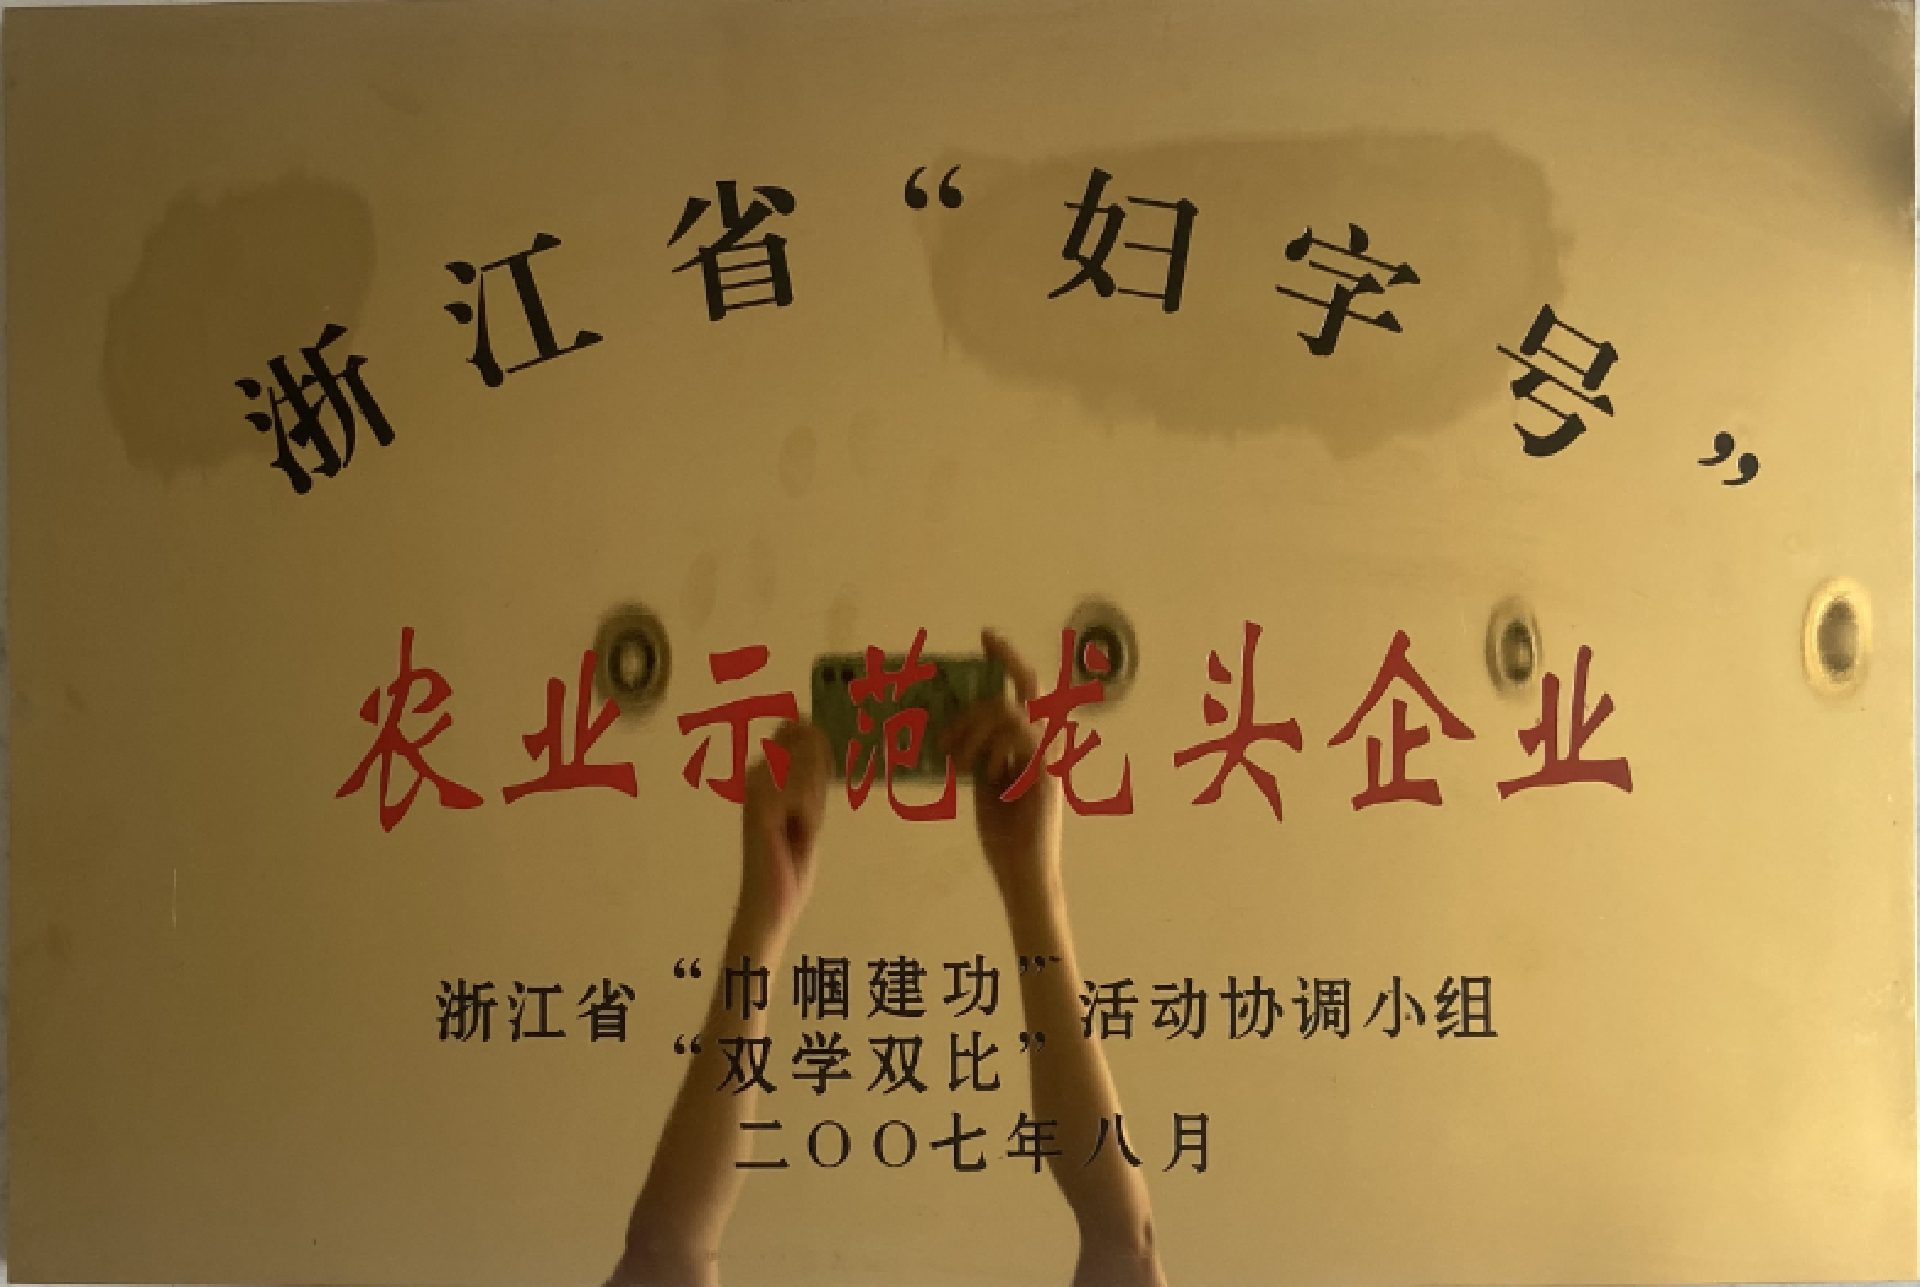 浙江省“妇字号”
农业示范龙头企业
浙江省“巾帼建功”“双学双比”活动协调小组
二〇〇七年八月